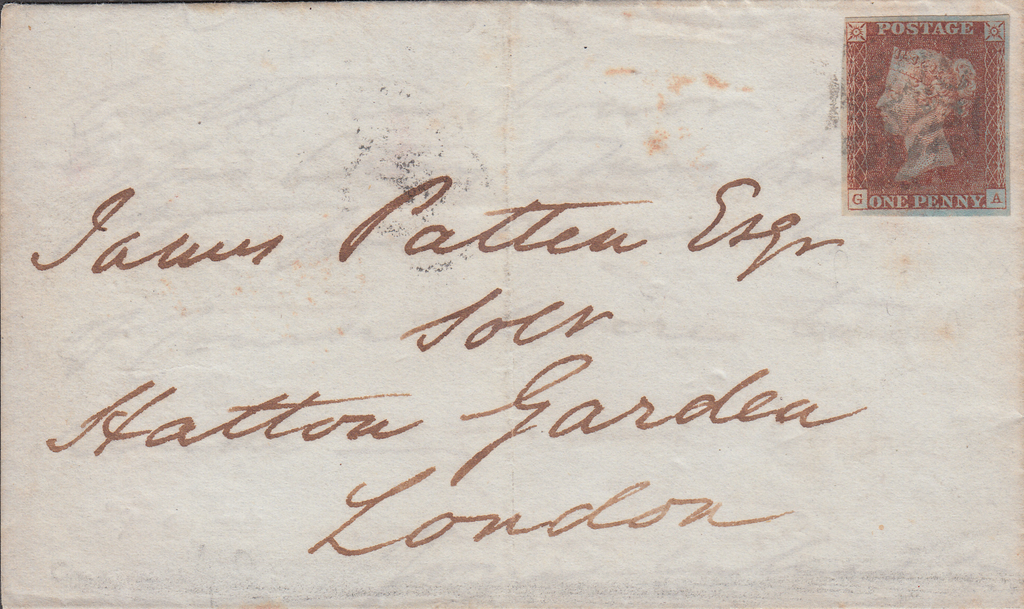 POSTAGE
G ONE PENNY. A
James Patten Esqr
Solr
Hatton Garden
London